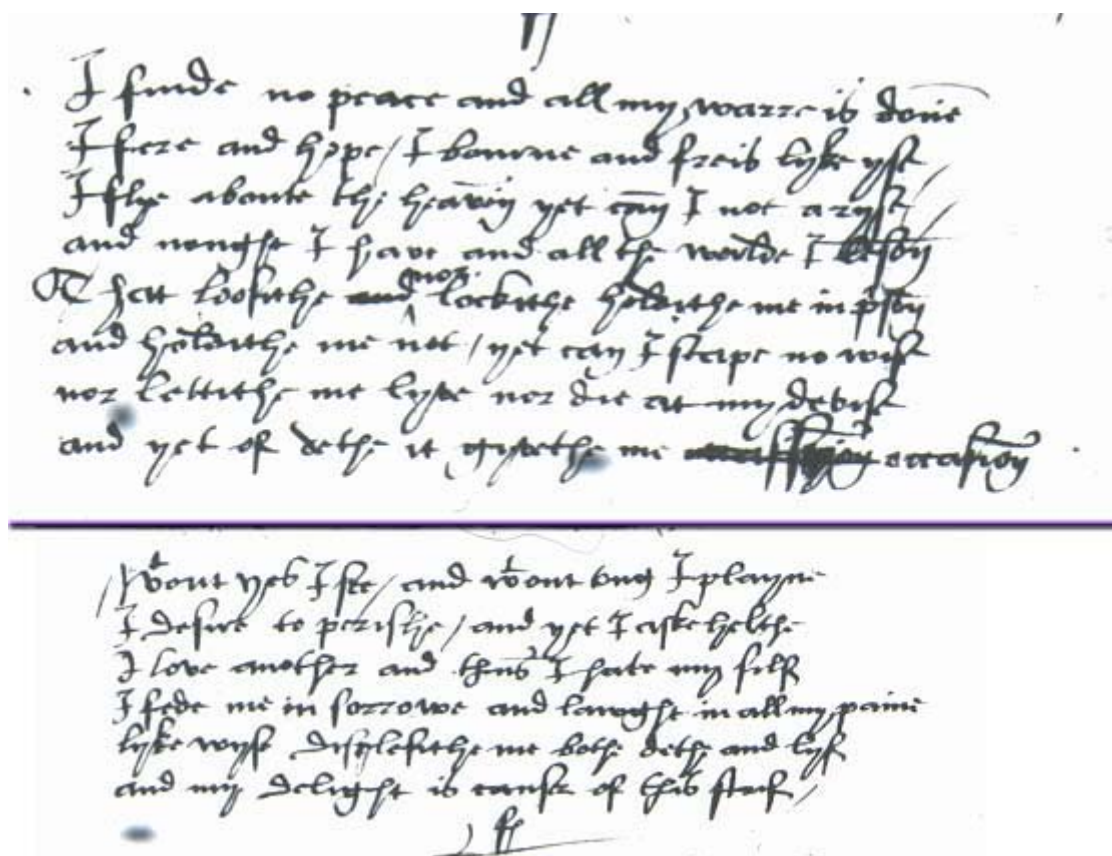 I finde no peace and all my warre is done
I fere and hope / I bourne and freis lyke yse /
I flye aboute the heavin yet can I not aryse /
and nought I have and all the worlde I seson
That lookithe and nor lockithe holdithe me in prison
and holdithe me not / yet can I scape no wise
nor lettithe me lyve nor die at my devise
and yet of dethe it givethe me occasion
Wtout yes I se / and wtout tung I playne
I desire to perishe / and yet I aske helthe
I love another and thus I hate my silf
I fede me in sorrowe and laught in all my paine
lyke wyse displesithe me bothe dethe and lyf
and my delight is causer of this strif /